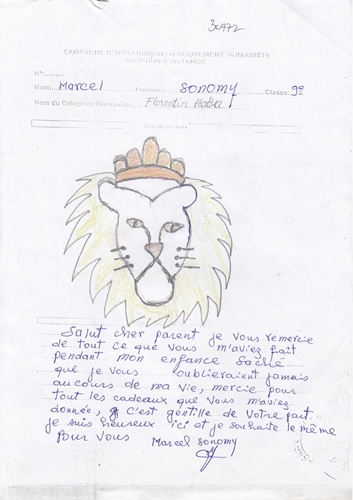 30972
CAMPAGNE D'APPUI HUMAIN DU MOUVEMENT HUMANISTE
ADOPTION A DISTANCE
N°:
Nom: Marcel Prénom: Sonomy Classe: 9e
Nom du Délégué Humaniste: Florentin
Salut cher parent je vous remercie
de tout ce que vous m'aviez fait
pendant mon enfance sachié
que je vous oublieraient jamais
au cours de ma vie, mercie pour
tout les cadeaux que vous m'aviez
donnée, C'est gentille de votre part
je suis hieureux ici et je souhaite le même
Pour vous Marcel sonomy